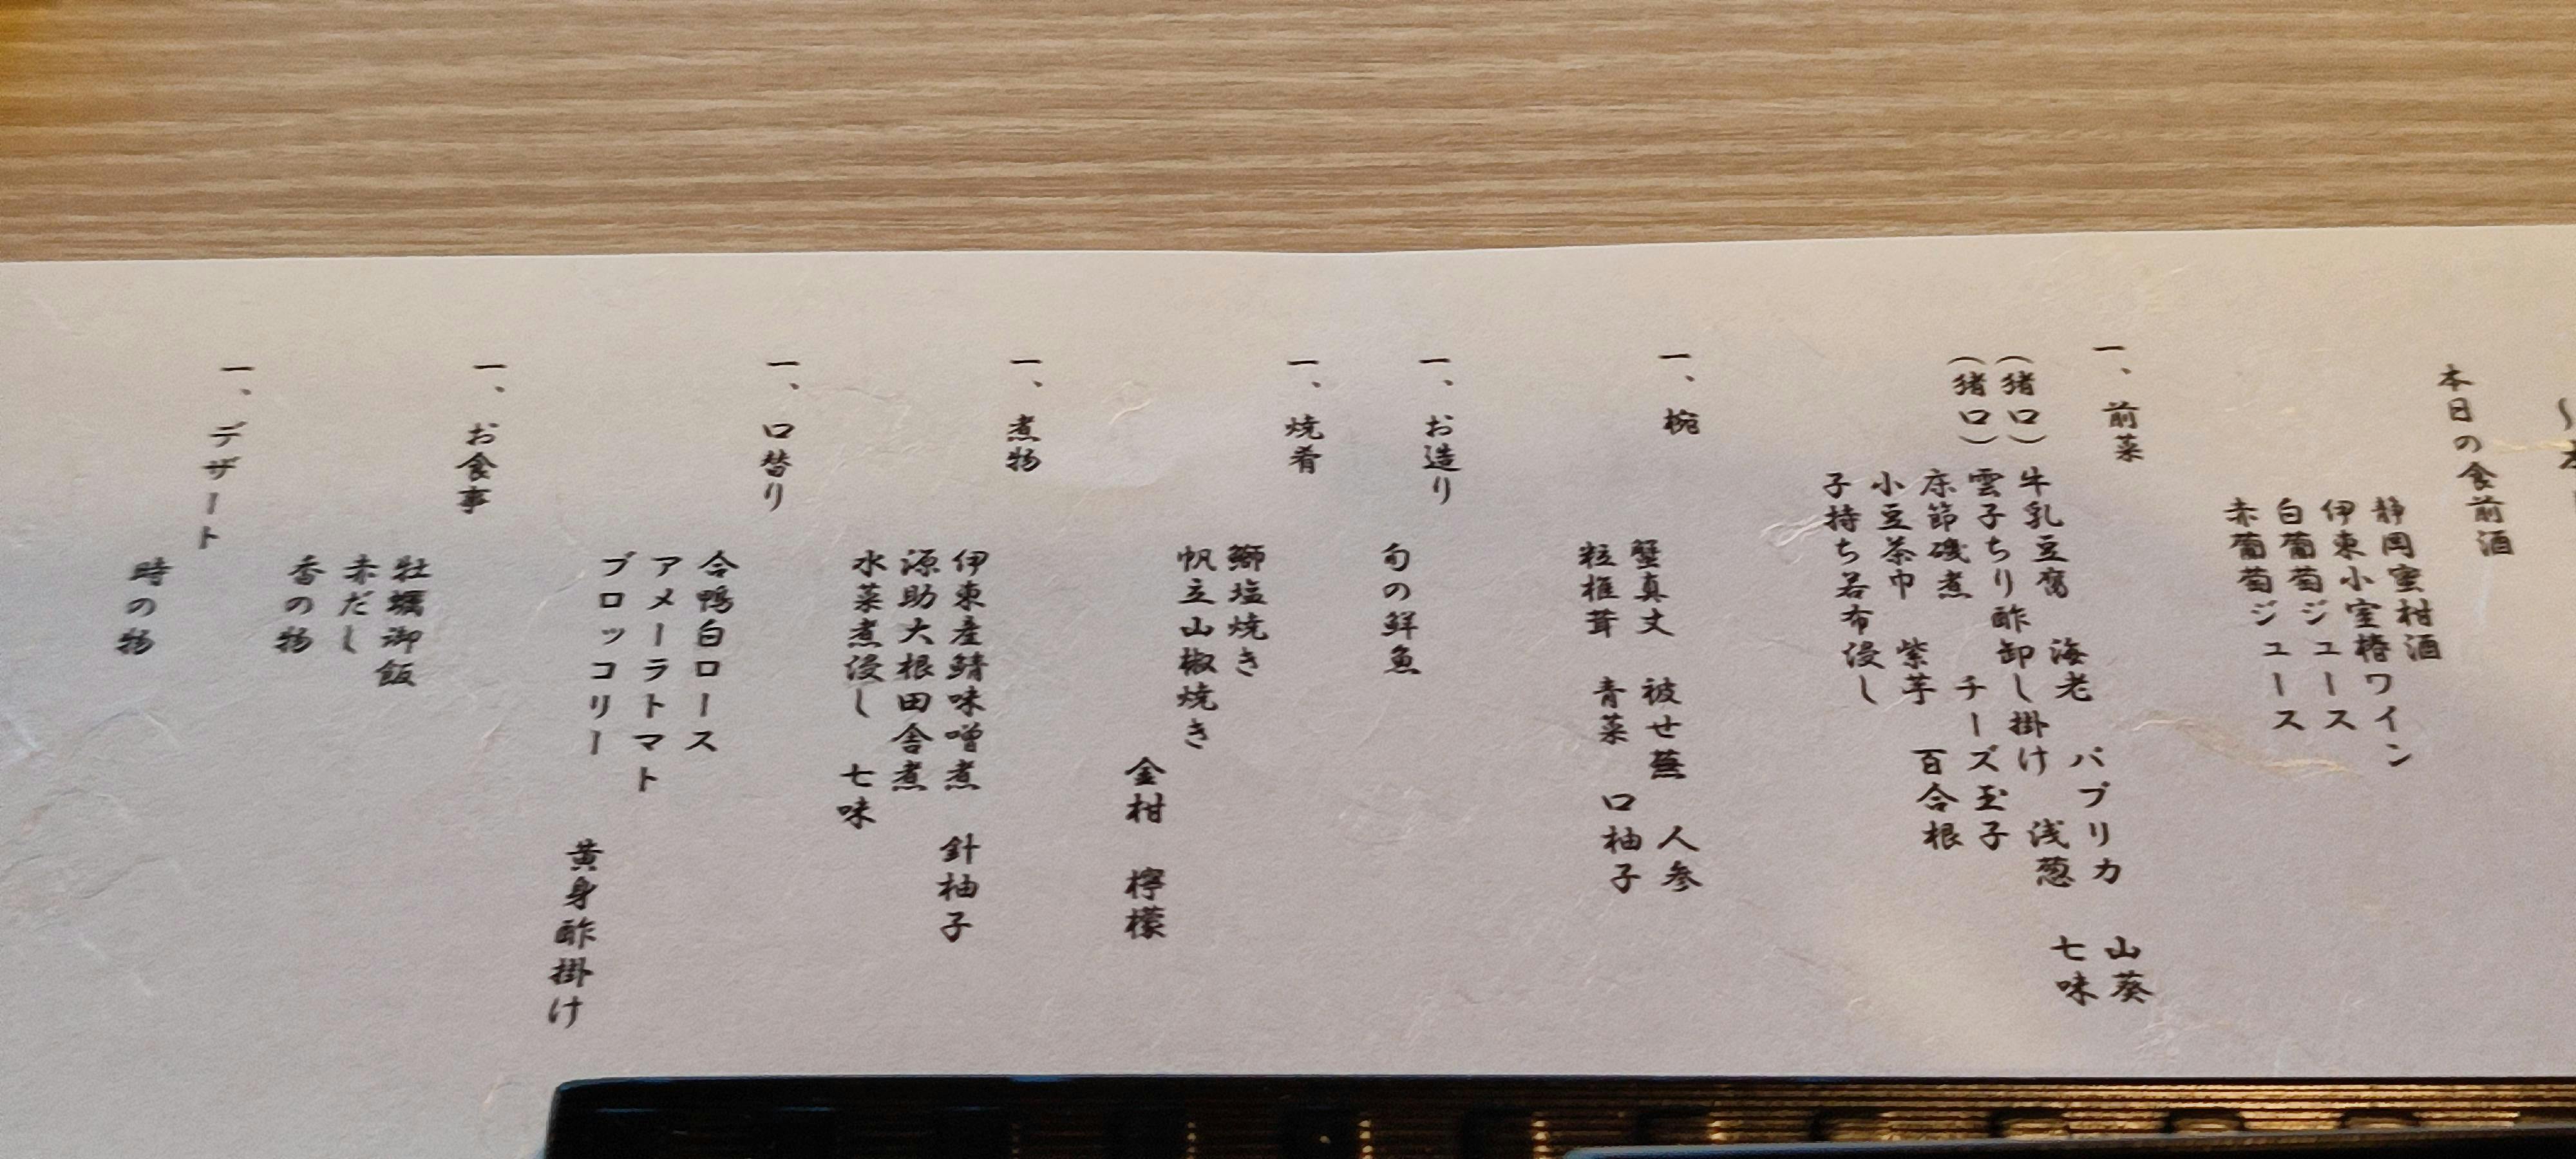 本日の食前酒
静岡蜜柑酒
伊東小室椿ワイン
白葡萄ジュース
赤葡萄ジュース
一、前菜
(猪口) 牛乳豆腐 海老 パプリカ 山葵
(猪口) 雲子ちり酢卸し掛け 浅葱 七味
床節磯煮 チーズ玉子
小豆茶巾 紫芋 百合根
子持ち若布浸し
一、椀
蟹真丈 被せ蕪 人参
粒椎茸 青菜 口柚子
一、お造り
旬の鮮魚
一、焼肴
鰤塩焼き
帆立山椒焼き
金柑 檸檬
一、煮物
伊東産鯖味噌煮 針柚子
源助大根田舎煮
水菜煮浸し 七味
一、口替り
合鴨白ロース
アメーラトマト
ブロッコリー
黄身酢掛け
一、お食事
牡蠣御飯
赤だし
香の物
一、デザート
時の物